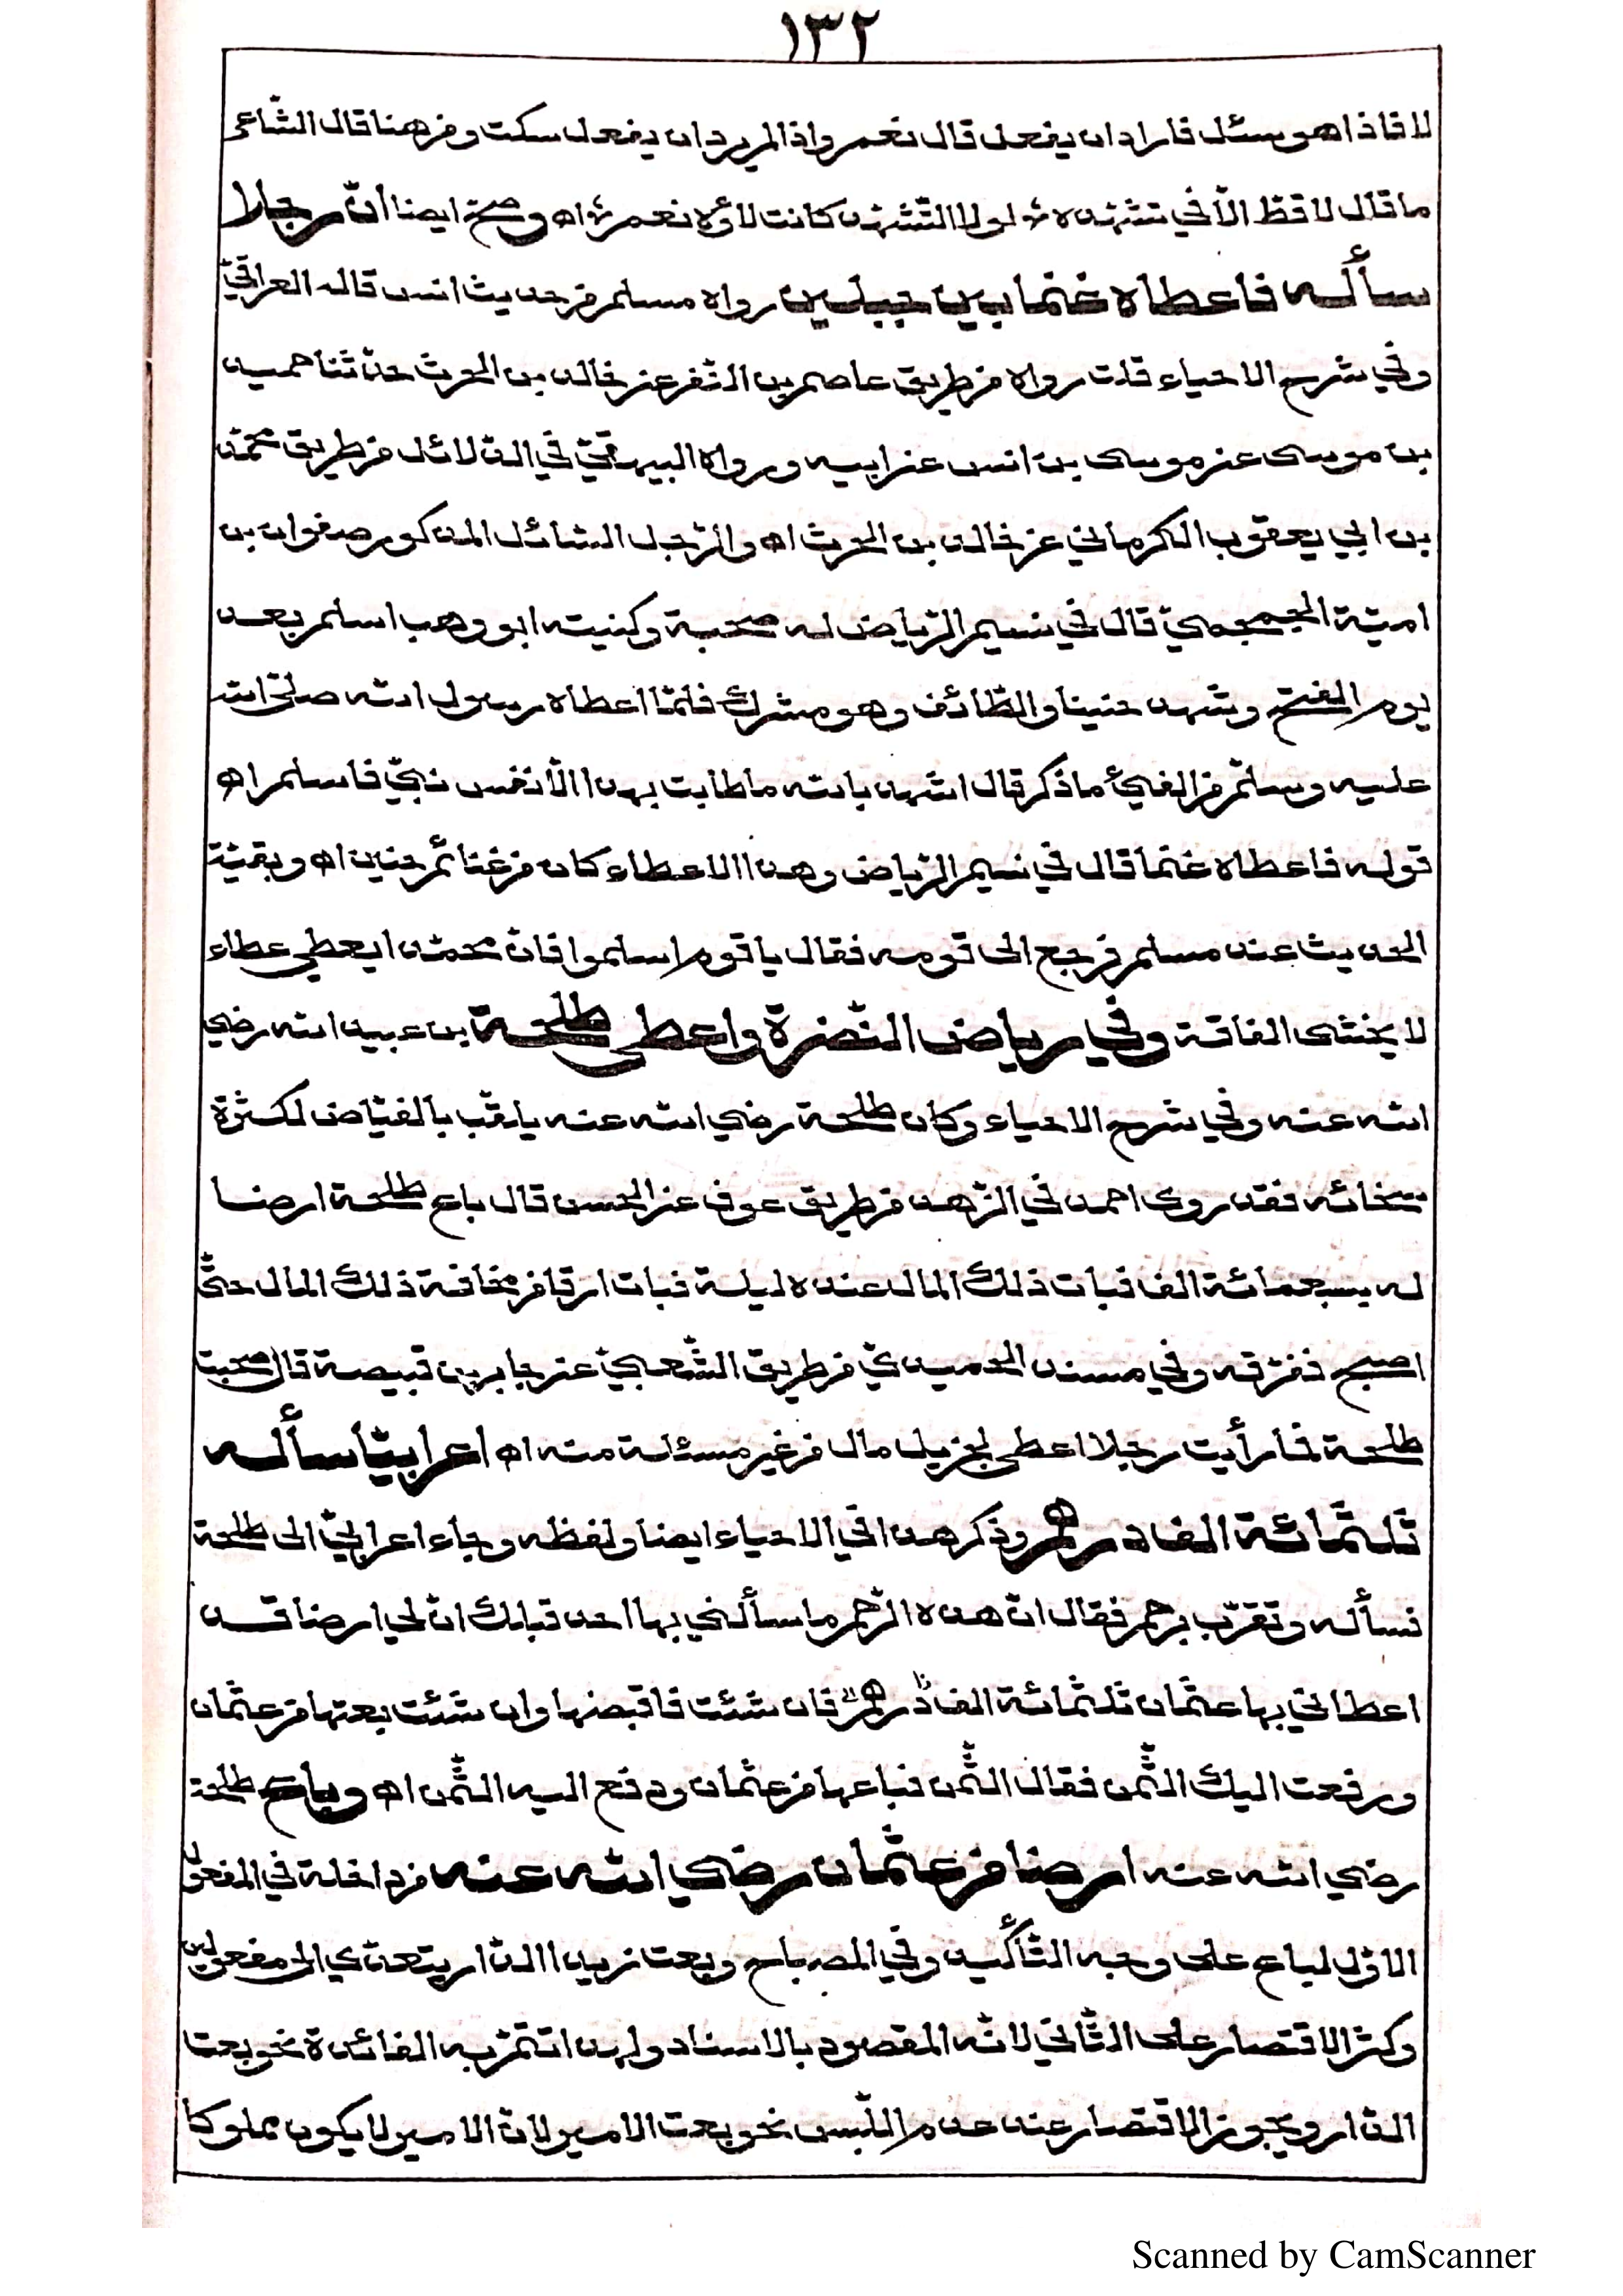 ١٣٢
لا فاذا هو سئل فاراد ان يفعل قال نعم واذا لم يرد ان يفعل سكت ومن هنا قال الشّاعر
ما قال لا قطّ الّا في تشهّده ☆ لولا التّشهّد كانت لاؤه نعم ☆ اه وصحّ ايضا انّ رجلا
سأله فاعطاه غنما بين جبلين رواه مسلم من حديث انس قاله العراقيّ
وفي شرح الاحياء قلت رواه من طريق عاصم بن النّضر عن خالد بن الحرث حدّثنا حميد
بن موسى عن موسى بن انس عن ابيه ورواه البيهقيّ في الدّلائل من طريق محمّد
بن ابي يعقوب الكرماني عن خالد بن الحرث اه والرّجل السّائل المذكور صفوان بن
اميّة الجمحميّ قال في نسيم الرّياض له صحبة وكنيته ابو وهب اسلم بعد
يوم الفتح وشهد حنينا والطّائف وهو مشرك فلمّا اعطاه رسول الله صلّى الله
عليه وسلّم من الفيئ ما ذكر قال اشهد بالله ما طابت بهذا الّا نفس نبيّ فاسلم اه
قوله فاعطاه غنما قال في نسيم الرّياض وهذا الاعطاء كان من غنائم حنين اه وبقيّة
الحديث عند مسلم فرجع الى قومه فقال يا قوم اسلموا فانّ محمّدا يعطي عطاء
لا يخشى الفاقة وفي رياض النّضرة واعطى طلحة بن عبيد الله رضي
الله عنه وفي شرح الاحياء وكان طلحة رضي الله عنه يلقّب بالفيّاض لكثرة
سخائه فقد روى احمد في الزّهد من طريق عوف عن الحسن قال باع طلحة ارضا
له بسبعمائة الف فبات ذلك المال عنده ليلة فبات ارقا من مخافة ذلك المال حتّى
اصبح ففرّقه وفي مسند الحميديّ من طريق الشّعبيّ عن جابر بن قبيصة قال صحبت
طلحة فما رأيت رجلا اعطى لجزيل مال من غير مسئلة منه اه اعرابيّا سأله
ثلثمائة الف درهم وذكر هذا في الاحياء ايضا ولفظه وجاء اعرابيّ الى طلحة
فسأله وتقرّب برحم فقال انّ هذه الرّحم ما سألني بها احد قبلك انّ لي ارضا قد
اعطاني بها عثمان ثلثمائة الف درهم فان شئت فاقبضها وان شئت بعتها من عثمان
ورفعت اليك الثّمن فقال الثّمن فباعها من عثمان ودفع اليه الثّمن اه وباع طلحة
رضي الله عنه ارضا من عثمان رضي الله عنه من داخلة في المفعول
الاوّل لباع على وجه التّأكيد وفي المصباح وبعت زيدا الدّار يتعدّي الى مفعولين
وكثر الاقتصار على الثّاني لانّه المقصود بالاسناد ولهذا تتمّ به الفائدة نحو بعت
الدّار ويجوز الاقتصار عند عدم اللّبس نحو بعت الامير لانّ الامير لا يكون مملوكا
Scanned by CamScanner